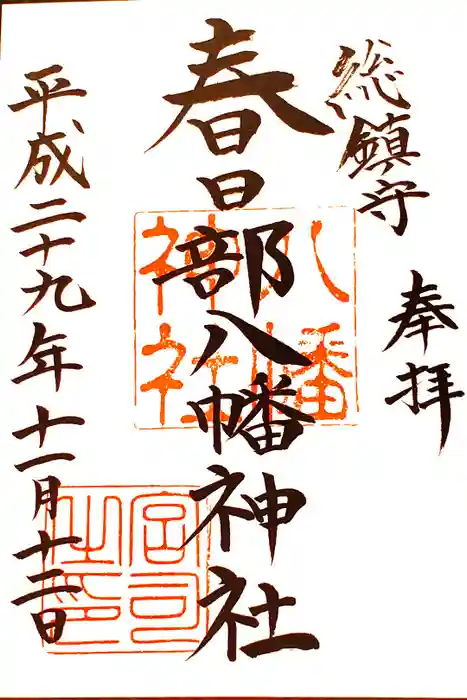 奉拝
総鎮守
春日部八幡神社
平成二十九年十一月十二日
八幡神社
宮司之印